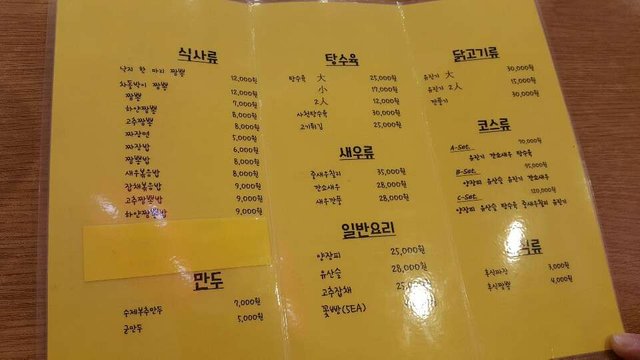 식사류
낙지 한 마리 짬뽕 12,000원
차돌박이 짬뽕 12,000원
짬뽕 7,000원
하얀짬뽕 8,000원
고추짬뽕 8,000원
짜장면 5,000원
짜장밥 6,000원
짬뽕밥 8,000원
새우볶음밥 8,000원
잡채볶음밥 9,000원
고추짬뽕밥 9,000원
하얀짬뽕밥 9,000원
만두
수제부추만두 7,000원
군만두 5,000원
탕수육
탕수육 大 25,000원
小 17,000원
2人 12,000원
사천탕수육 30,000원
고기튀김 25,000원
새우류
중새우칠리 35,000원
깐쇼새우 28,000원
새우깐풍 28,000원
일반요리
양장피 25,000원
유산슬 28,000원
고추잡채 25,
꽃빵(5EA)
닭고기류
유린기 大 30,000원
유린기 2人 15,000원
깐풍기 30,000원
코스류
A-Set. 70,000원
유린기 깐쇼새우 탕수육
B-Set. 95,000원
양장피 유산슬 유린기 깐쇼새우
C-Set. 120,000원
양장피 유산슬 탕수육 중새우칠리 유린기
식류
후식짜장 3,000원
후식짬뽕 4,000원